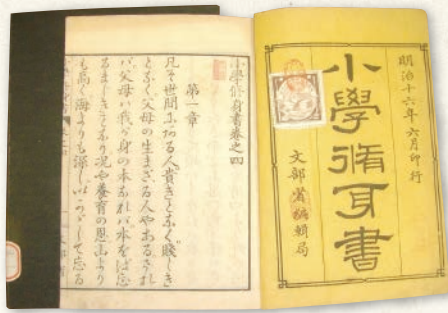 明治十六年六月印行
小學脩身書
文部省編輯局
小學修身書卷之四
第一章
凡そ世間にある人貴きとなく賤しき
となく父母の生まざる人やあるされ
バ父母ハ我が身の本なれバ本をば忘
るまじきことなり况や養育の恩山より
も高く海よりも深しいかゞして忘る